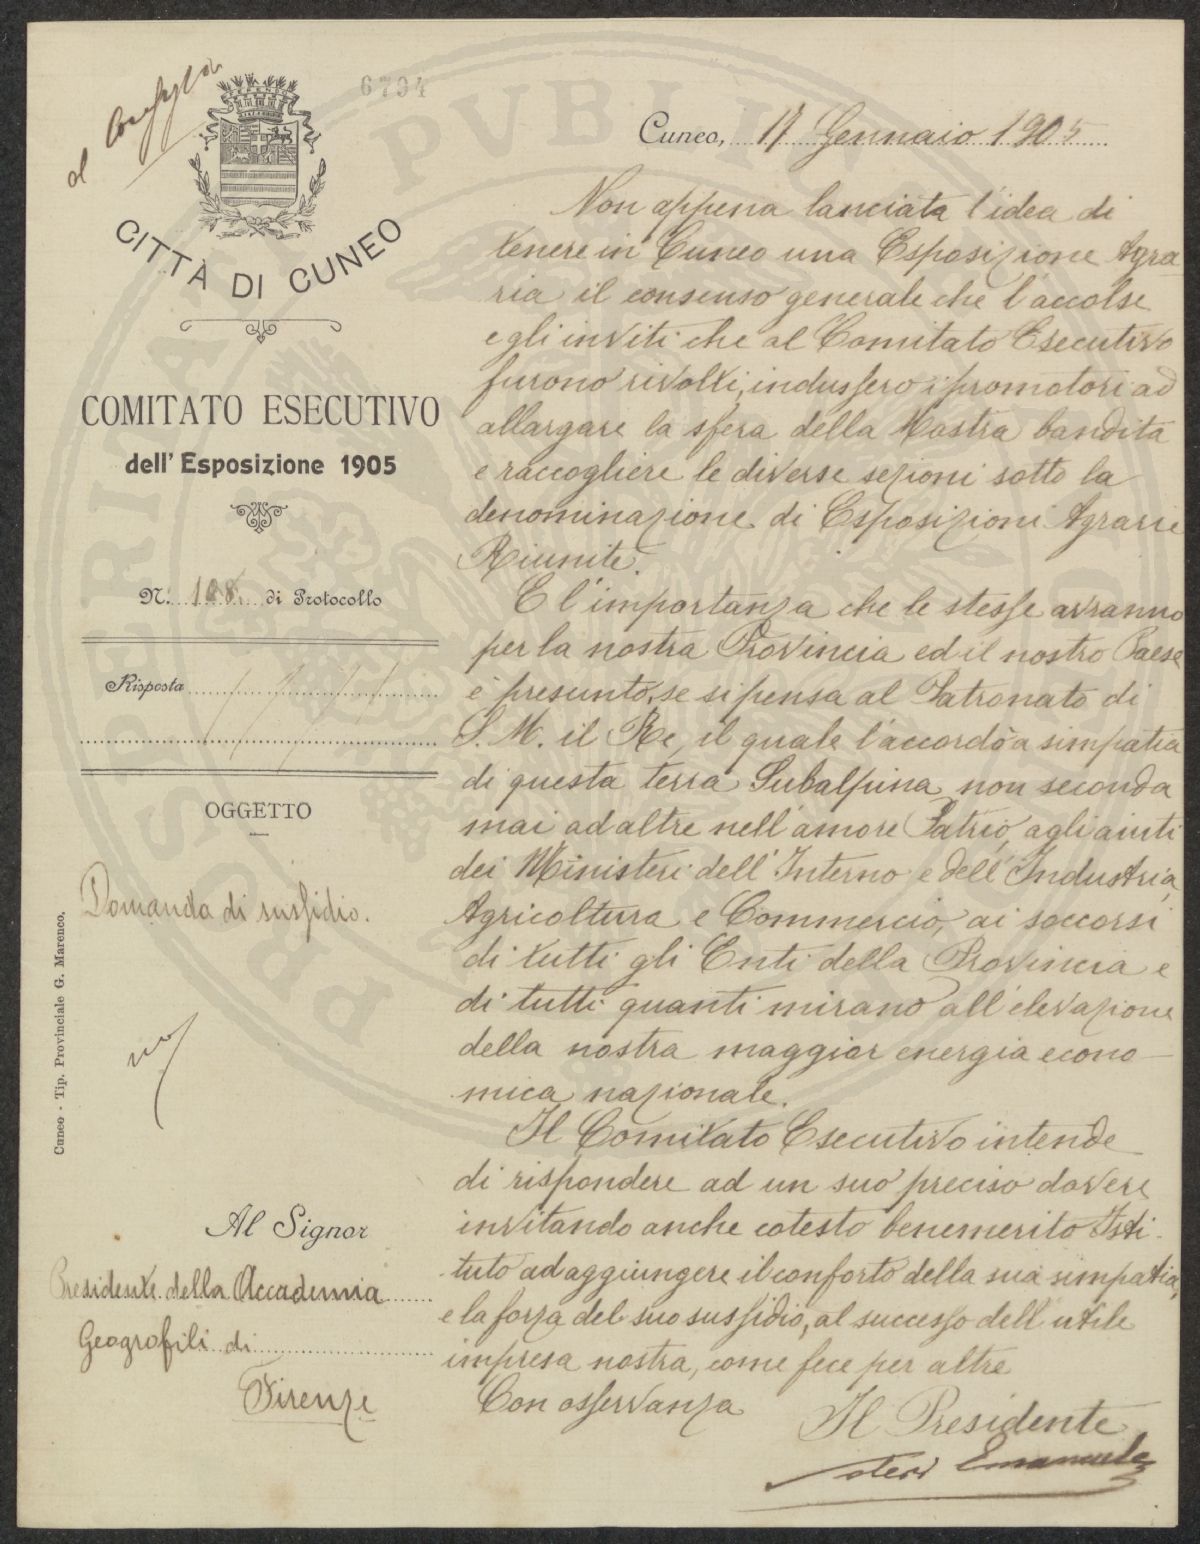 al Consiglio
6794
CITTÀ DI CUNEO
COMITATO ESECUTIVO
dell' Esposizione 1905
N.° 108 di Protocollo
Risposta
OGGETTO
Domanda di sussidio.
no
Cuneo - Tip. Provinciale G. Marenco.
Al Signor
Presidente della Accademia
Geogrofili di
Firenze
Cuneo, 17 Gennaio 1905
Non appena lanciata l'idea di
tenere in Cuneo una Esposizione Agra
ria il consenso generale che l'accolse
e gli inviti che al Comitato Esecutivo
furono rivolti, indussero i promotori ad
allargare la sfera della Mostra bandita
e raccogliere le diverse sezioni sotto la
denominazione di Esposizioni Agrarie
Riunite.
E l'importanza che le stesse avranno
per la nostra Provincia ed il nostro Paese
è presunto, se si pensa al Patronato di
S. M. il Re, il quale l'accordò a simpatia
di questa terra Subalpina, non seconda
mai ad altre nell'amore Patrio, agli aiuti
dei Ministeri dell'Interno e dell'Industria,
Agricoltura e Commercio, ai soccorsi
di tutti gli Enti della Provincia e
di tutti quanti mirano all'elevazione
della nostra maggior energia econo-
mica nazionale.
Il Comitato Esecutivo intende
di rispondere ad un suo preciso dovere
invitando anche cotesto benemerito Isti-
tuto ad aggiungere il conforto della sua simpatia,
e la forza del suo sussidio, al successo dell'utile
impresa nostra, come fece per altre
Con osservanza
Il Presidente
Emanuele